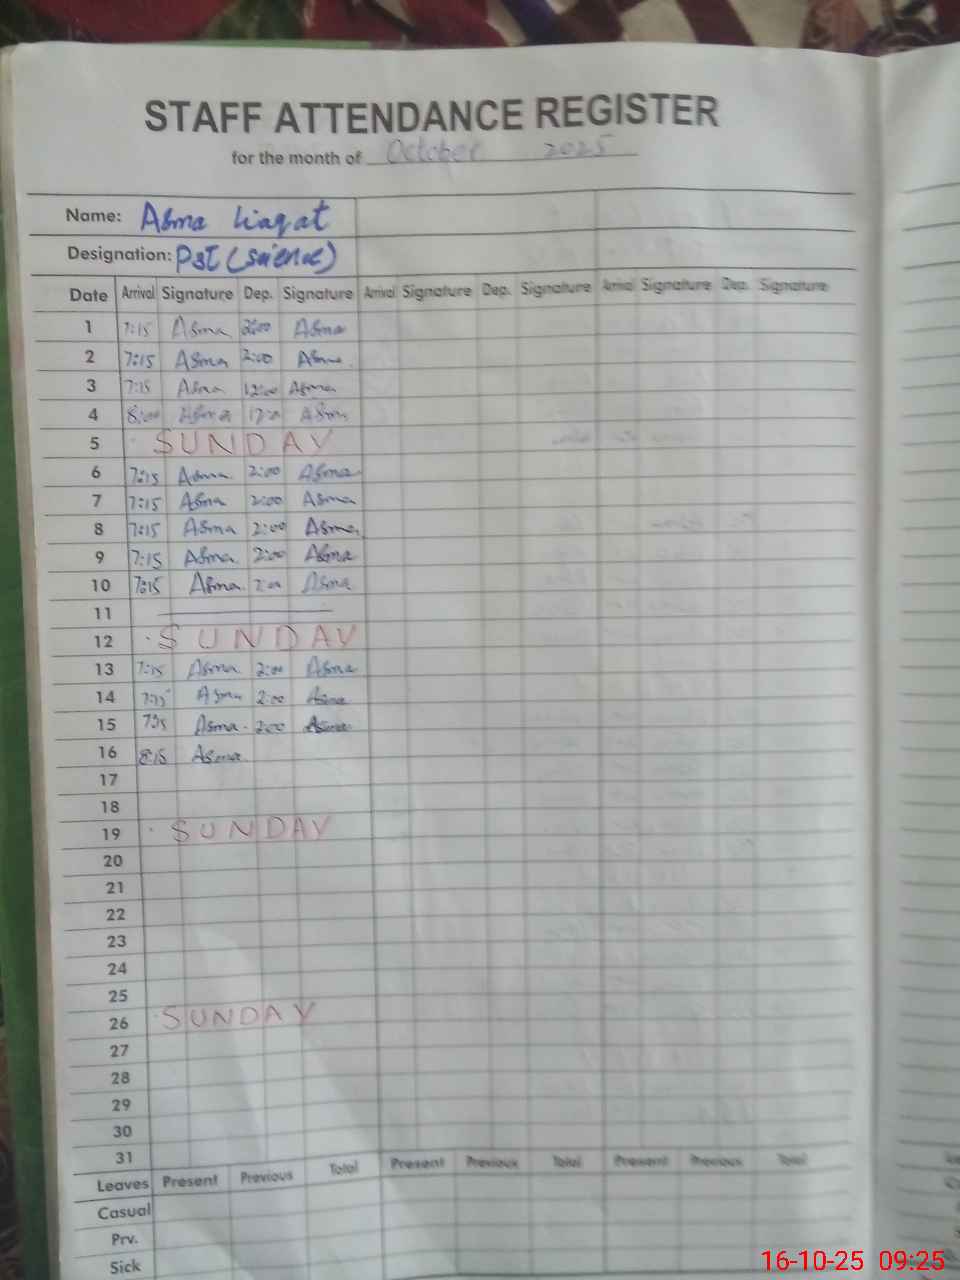 STAFF ATTENDANCE REGISTER
for the month of October 2025
Name: Asma Liaqat
Designation: PST (science)
Date Arrival Signature Dep. Signature Arrival Signature Dep. Signature Arrival Signature Dep. Signature
1 7:15 Asma 2:00 Asma
2 7:15 Asma 2:00 Asma
3 7:15 Asma 12:00 Asma
4 8:00 Asma Asma
5 SUNDAY
6 7:15 Asma 2:00 Asma
7 7:15 Asma 2:00 Asma
8 7:15 Asma 2:00 Asma
9 7:15 Asma 2:00 Asma
10 7:15 Asma 2:00 Asma
11
12 SUNDAY
13 7:15 Asma 2:00 Asma
14 7:15 Asma 2:00 Asma
15 7:15 Asma 2:00 Asma
16 8:15 Asma
17
18
19 SUNDAY
20
21
22
23
24
25
26 SUNDAY
27
28
29
30
31
Leaves Present Previous Total Present Previous Total Present Previous Total
Casual
Prv.
Sick
16-10-25 09:25